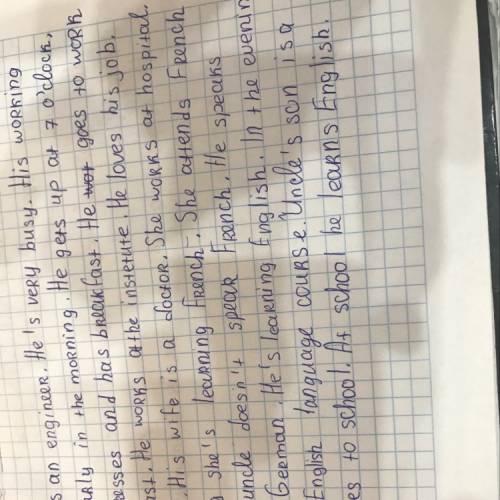 s an engineer. He's very busy. His working
rly in the morning. He gets up at 7 o'clock,
esses and has breakfast. He goes to work
st. He works at the institute. He loves his job.
. His wife is a doctor. She works at hospital.
g she's learning French. She attends French
uncle doesn't speak French. He speaks
German. He's learning English. In the evenin
English language course. Uncle's son is a
es to school. At school he learns English.